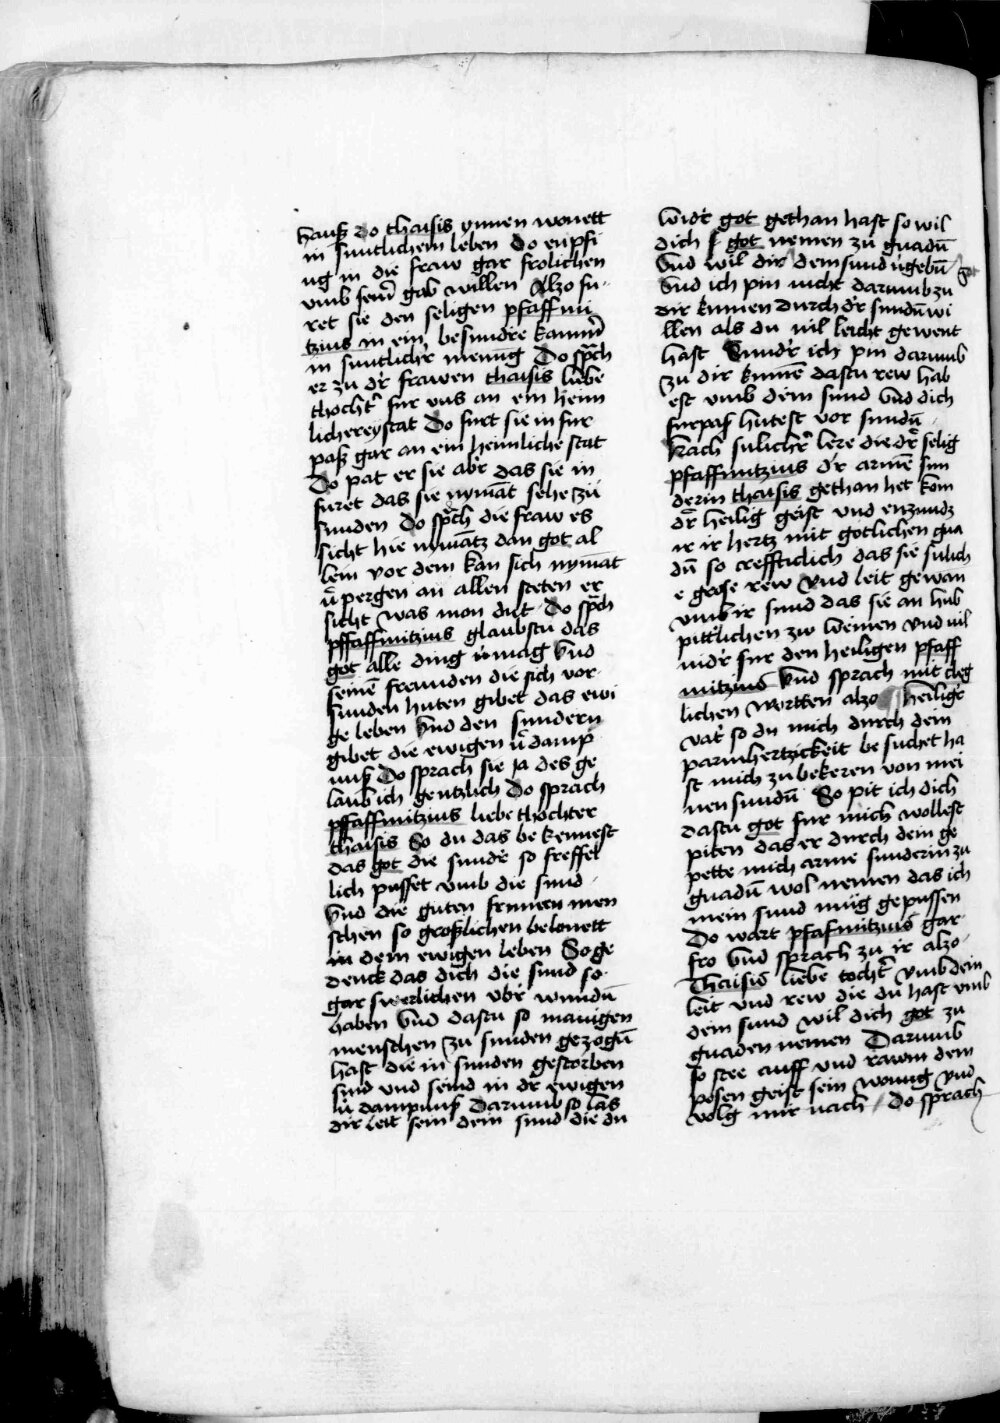 hauſz do thaisis ynnen wonett
in suntlichem leben do enpfi
ng in die fraw gar frolichen
vmb seīr gab willen Alzo fu-
ret sie den seligen pfaffnu
tzius in ein besundre kamm̄
in suntlichr̓ menūg Do sp̄ch
er zu dr̓ frawen thaisis liebe
thocht̓ fur vns an ein heim
lichereystat Do furt sie in fur
pasz gar an ein heimliche stat
Do pat er sie abr̓ das sie in
furet das sie nymāt sehe zü
sunden Do sp̄ch die fraw es
sicht hie nymātz dan got al
lein vor dem kan sich nymāt
v̓pergen an allen steten er
sicht was mon dut Do sp̄ch
pfaffnitzius glaubstu das
got alle ding v̓mag Vnd
seinē freunden die sich vor
sunden huten gibet das ewi
ge leben Vnd den sundern
gibet die ewigen v̓damp
nusz Do sprach sie Ja des ge
laub ich gentzlich Do sprach
pfaffnitzius liebe thochter
thaisis So du das be kennest
das got die sundr̓ so freffel
lich pusset vmb die sund
Vnd die guten frumen men
schen so groszlichen belonett
in dem ewigen leben So ge
denck das dich die sund so
gar swerlichen vbr̓ wundū
haben Vnd dastu so manigen
menschen zu sunden gezogū
hast die in sunden gestorben
sind vnd seind in dr̓ ewigen
v̓dampnusz Darumb so las
dir leit sein dein sund die du
widr̓ got gethan hast so wil
dich got nemen zu gnadū
Vnd wil dir dein sund v̓gebū
Vnd ich pin nicht darumb zu
dir kumen durch dr̓ sundū wi
llen als du vil leicht gewent
hast Sundr̓ ich pin darumb
zu dir kumē dastu rew hab
est vmb dein sund Vnd dich
furpasz hutest vor sundū
Nach sulichr̓ lere die dr̓ selig
pfaffnutzius dr̓ armē sun
derin thaisis gethan het kom
dr̓ heilig geist vnd enzundz
ir ir hertz mit gotlichen gna
dū so creffticlich das sie sulich
e grose rew Vnd leit gewan
vmb ir sund das sie an hub
pittr̓lichen zw weinen Vnd vil
nidr̓ fur den heiligen pfaff
nutzius Vnd sprach mit cleg
lichen wortten alzo heiligr̓
vatr̓ so du mich durch dein
parmhertzickeit be suchet ha
st mich zu bekeren von mei
nen sundū So pit ich dich
dastu got fur mich wollest
piten das er durch dein ge
pette mich arme sunderin zu
gnadū wol nemen das ich
mein sund müg gepussen
Do wart pfafnutzius gar
fro Vnd sprach zu ir alzo
Thaisis liebe tocht̓ Vmb dein
leit vnd rew die du hast vmb
dein sund wil dich got zu
gnaden nemen Darumb
so stee auff vnd rawm dem
posen geist sein wonug vnd
volg mir nach / Do sprach